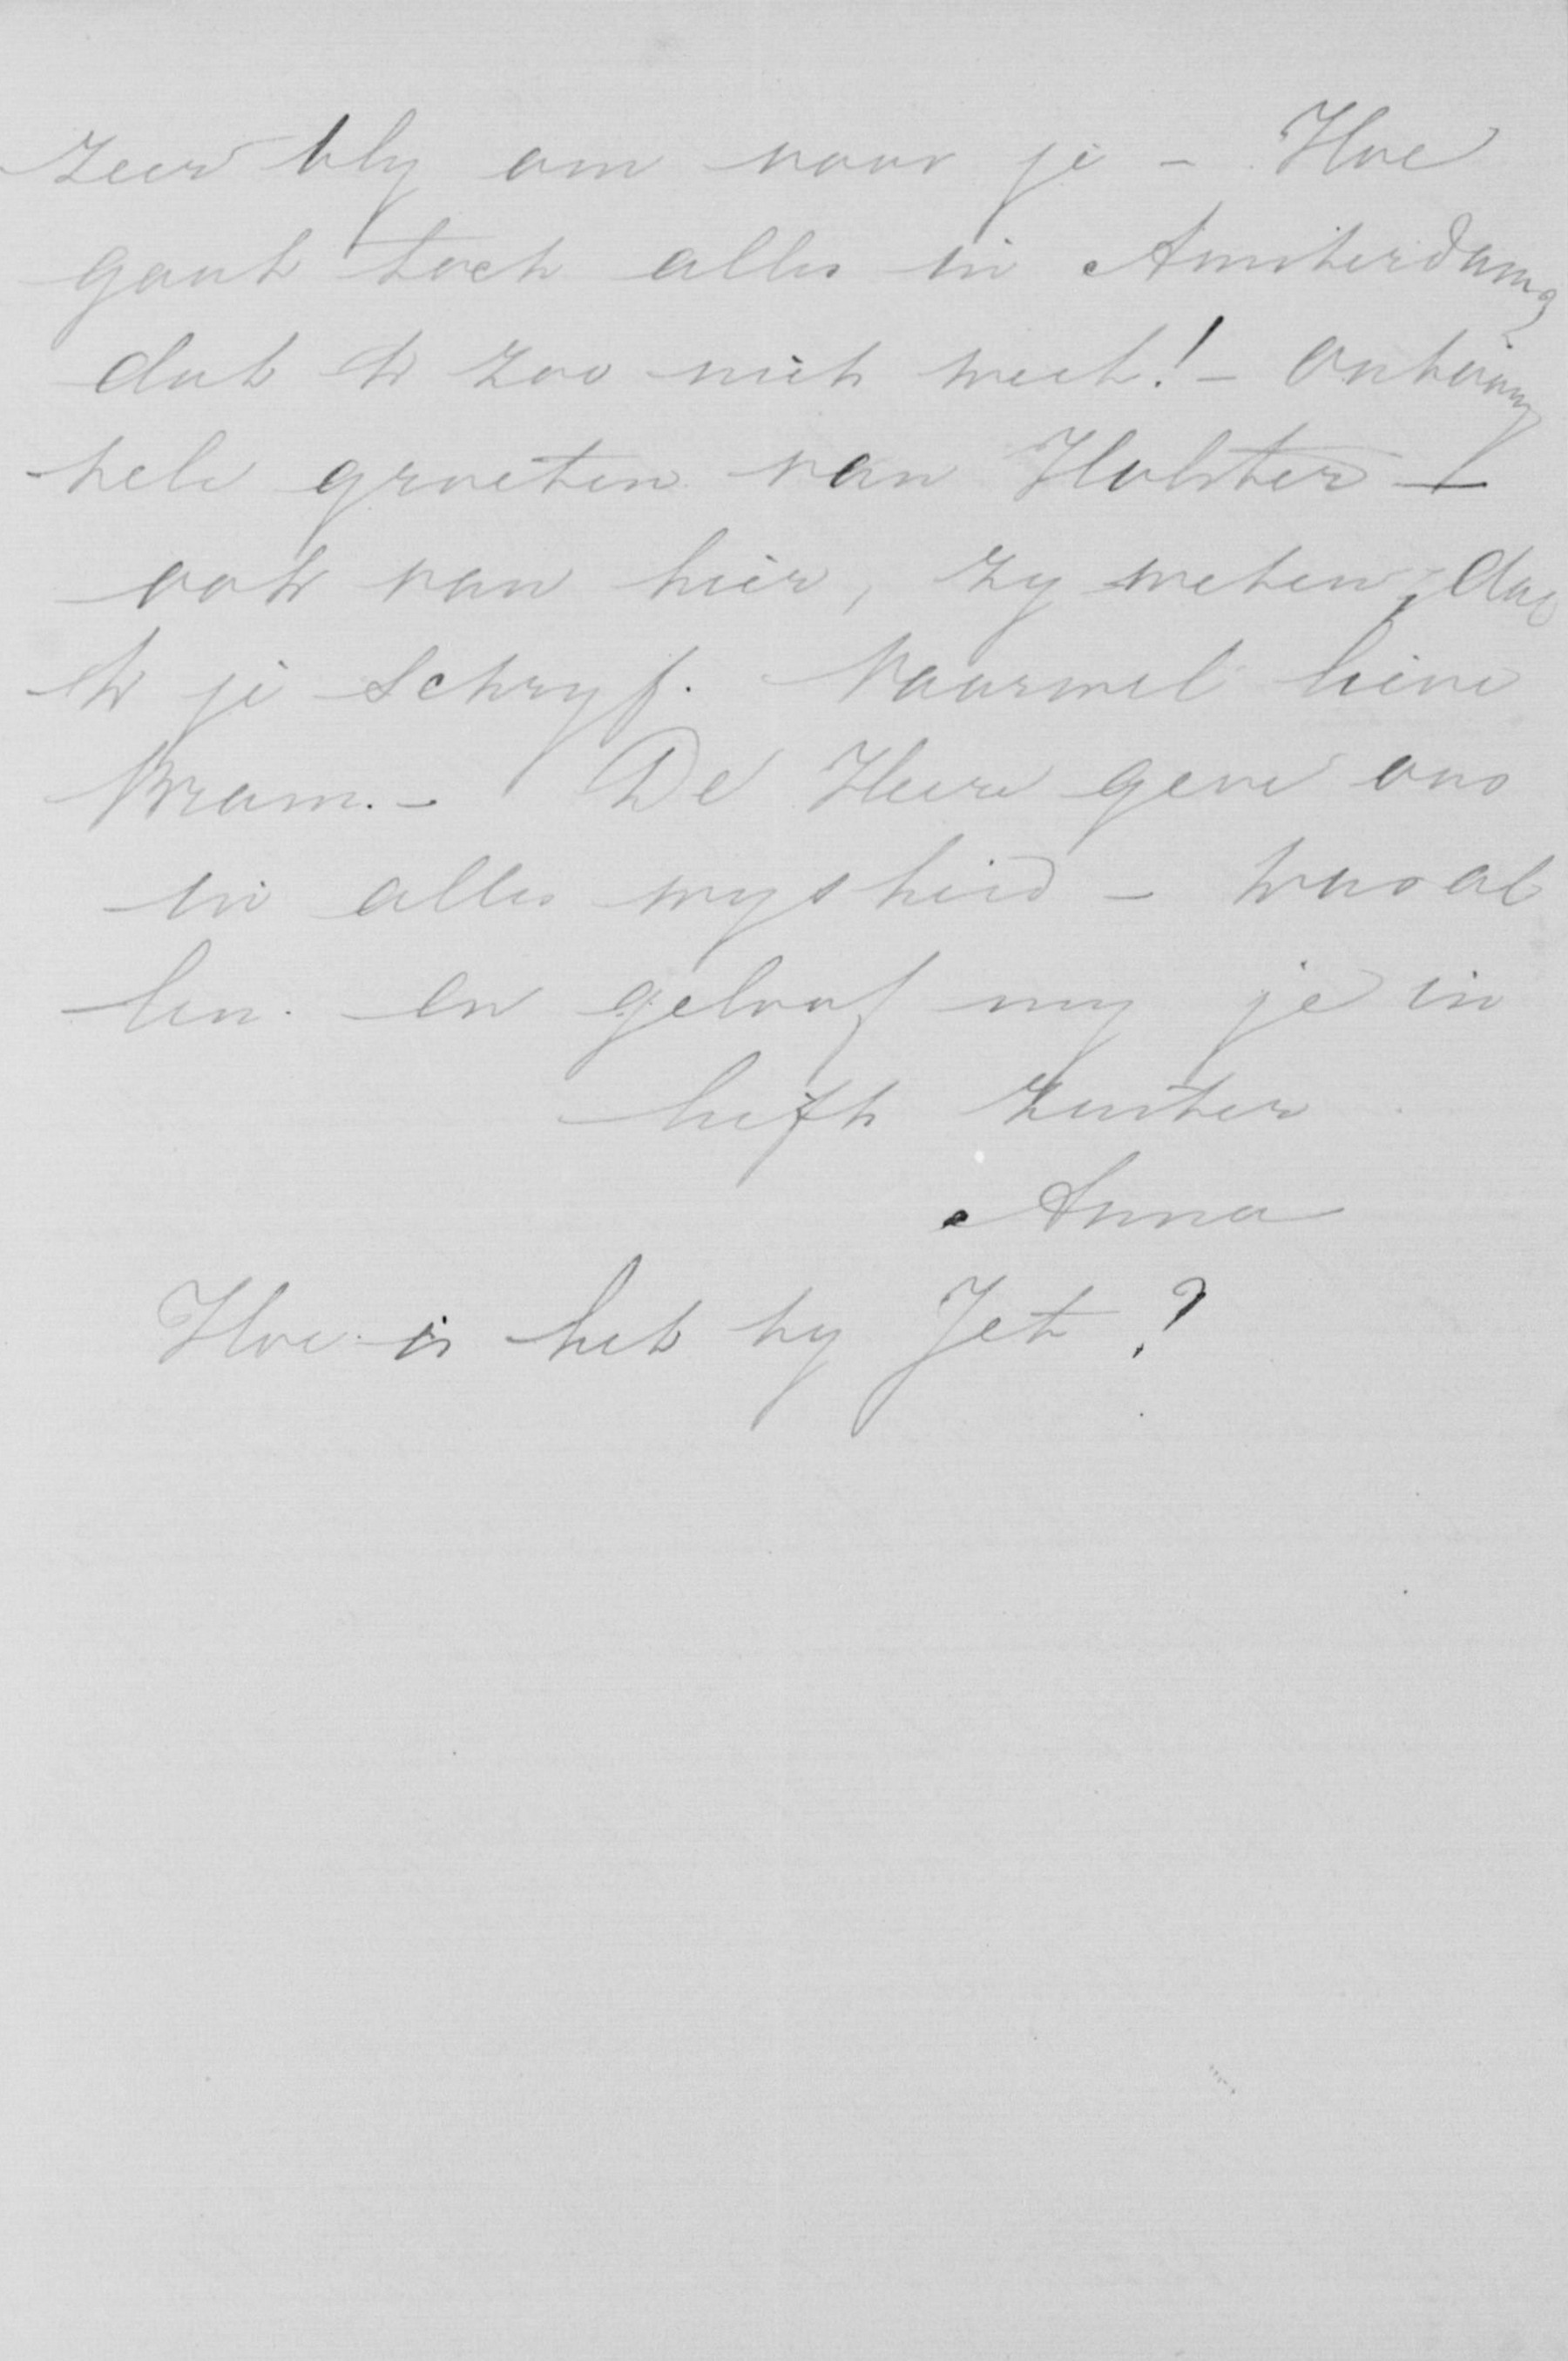 zeer bly om voor je - Hoe
gaat toch alles in Amsterdam,
dat ik zoo niet weet! - Ontvang
vele groeten van Holster -
ook van hier, zy weten, dat
ik je schryf. Vaarwel lieve
Bram. - De Heere geve ons
in alles wysheid - kus al
len. en geloof my je in
liefh zuster
Anna
Hoe is het by Jet?